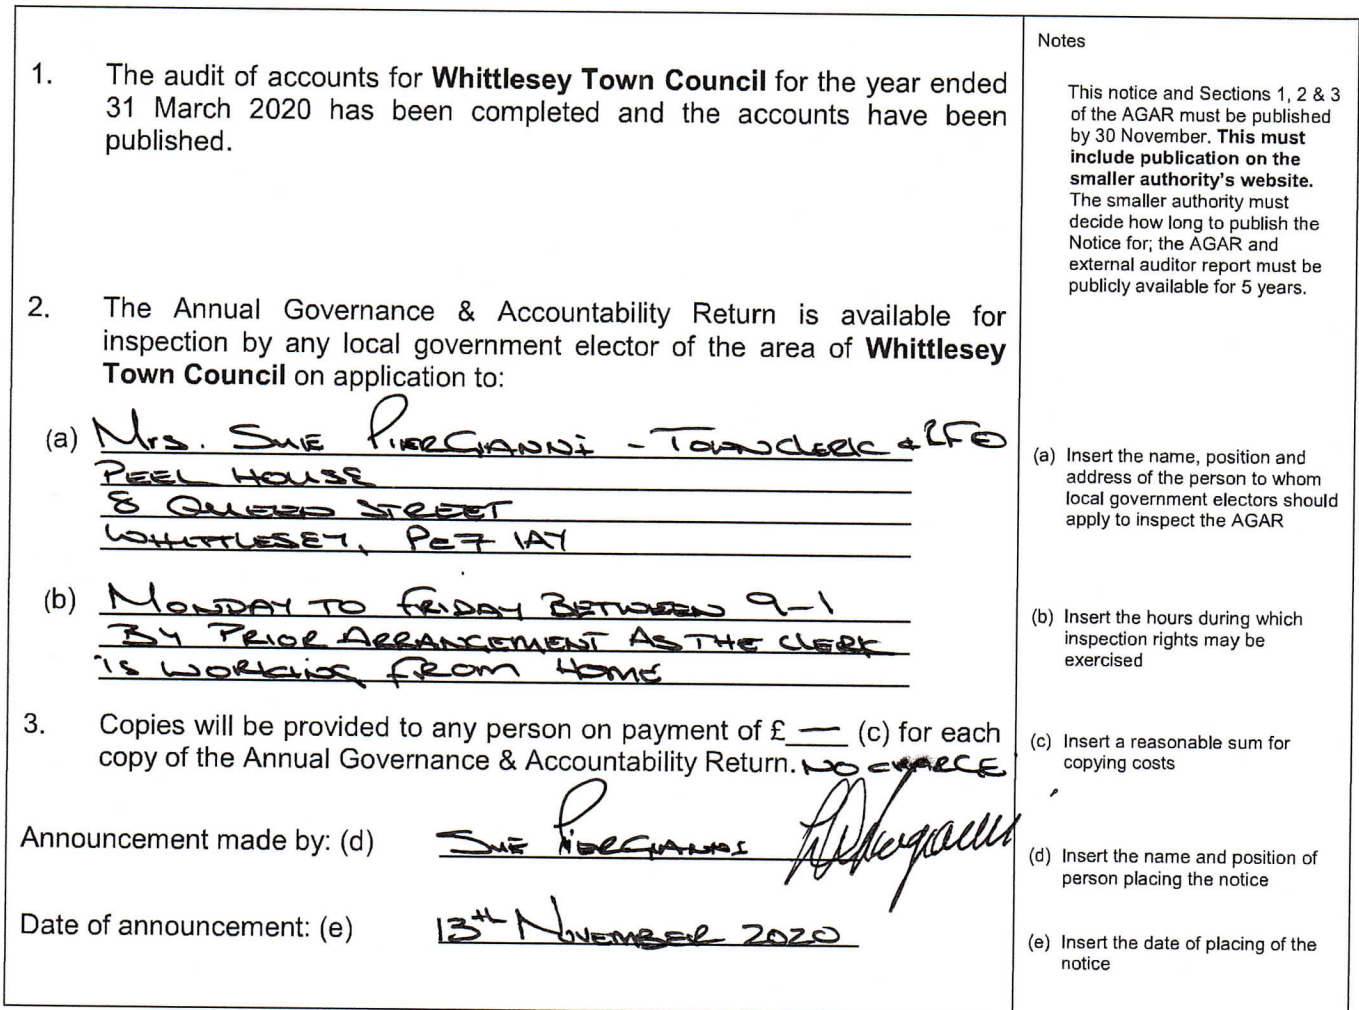 1. The audit of accounts for Whittlesey Town Council for the year ended
31 March 2020 has been completed and the accounts have been
published.
2. The Annual Governance & Accountability Return is available for
inspection by any local government elector of the area of Whittlesey
Town Council on application to:
(a) Mrs. SUE PIERGIANNI - TOWN CLERK & RFO
PEEL HOUSE
8 QUEEN STREET
WHITTLESEY, PE7 1AY
(b) MONDAY TO FRIDAY BETWEEN 9-1
BY PRIOR ARRANGEMENT AS THE CLERK
IS WORKING FROM HOME
3. Copies will be provided to any person on payment of £ — (c) for each
copy of the Annual Governance & Accountability Return. NO CHARGE
Announcement made by: (d) SUE PIERGIANNI
Date of announcement: (e) 13th NOVEMBER 2020
Notes
This notice and Sections 1, 2 & 3
of the AGAR must be published
by 30 November. This must
include publication on the
smaller authority's website.
The smaller authority must
decide how long to publish the
Notice for; the AGAR and
external auditor report must be
publicly available for 5 years.
(a) Insert the name, position and
address of the person to whom
local government electors should
apply to inspect the AGAR
(b) Insert the hours during which
inspection rights may be
exercised
(c) Insert a reasonable sum for
copying costs
(d) Insert the name and position of
person placing the notice
(e) Insert the date of placing of the
notice